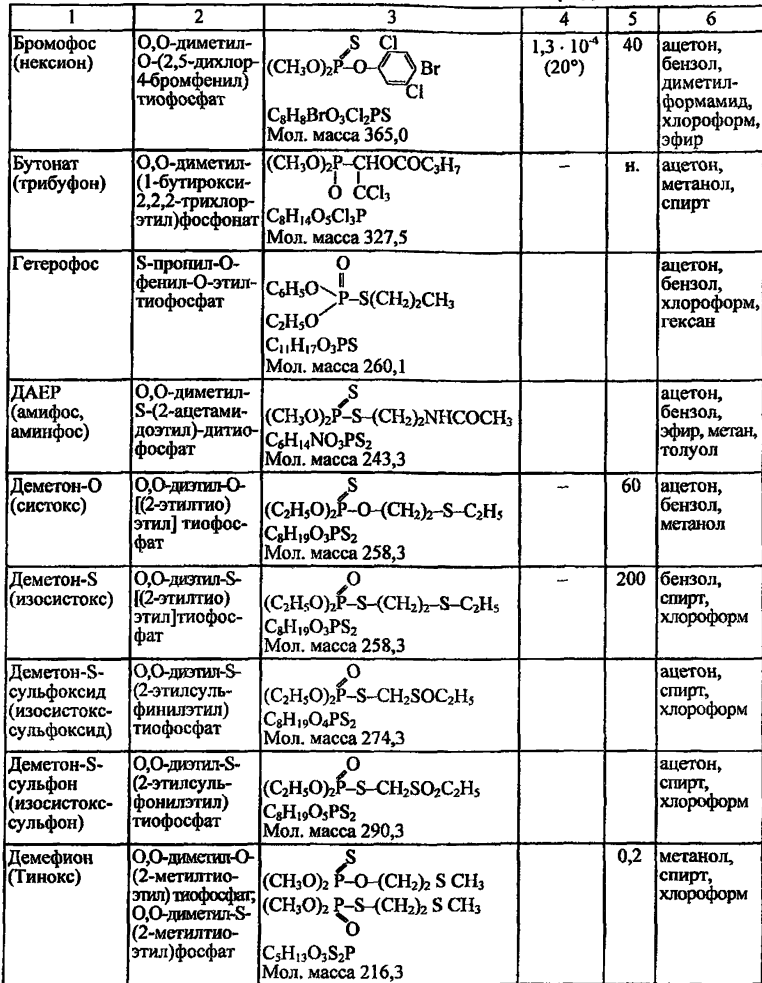 1 2 3 4 5 6
Бромофос
(нексион)
О,О-диметил-
О-(2,5-дихлор-
4-бромфенил)
тиофосфат
S
Cl
(CH₃O)₂P–O–
Br
Cl
C₈H₈BrO₃Cl₂PS
Мол. масса 365,0
1,3 · 10⁻⁴
(20°)
40
ацетон,
бензол,
диметил-
формамид,
хлороформ,
эфир
Бутонат
(трибуфон)
О,О-диметил-
(1-бутирокси-
2,2,2-трихлор-
этил)фосфонат
(CH₃O)₂P–CHOCOC₃H₇
O CCl₃
C₈H₁₄O₅Cl₃P
Мол. масса 327,5
–
н.
ацетон,
метанол,
спирт
Гетерофос
S-пропил-О-
фенил-О-этил-
тиофосфат
O
C₆H₅O
P–S(CH₂)₂CH₃
C₂H₅O
C₁₁H₁₇O₃PS
Мол. масса 260,1
ацетон,
бензол,
хлороформ,
гексан
ДАЕР
(амифос,
аминфос)
О,О-диметил-
S-(2-ацетами-
доэтил)-дитио-
фосфат
S
(CH₃O)₂P–S–(CH₂)₂NHCOCH₃
C₆H₁₄NO₃PS₂
Мол. масса 243,3
ацетон,
бензол,
эфир, метан,
толуол
Деметон-О
(систокс)
О,О-диэтил-О-
[(2-этилтио)
этил] тиофос-
фат
S
(C₂H₅O)₂P–O–(CH₂)₂–S–C₂H₅
C₈H₁₉O₃PS₂
Мол. масса 258,3
–
60
ацетон,
бензол,
метанол
Деметон-S
(изосистокс)
О,О-диэтил-S-
[(2-этилтио)
этил]тиофос-
фат
O
(C₂H₅O)₂P–S–(CH₂)₂–S–C₂H₅
C₈H₁₉O₃PS₂
Мол. масса 258,3
–
200
бензол,
спирт,
хлороформ
Деметон-S-
сульфоксид
(изосистокс-
сульфоксид)
О,О-диэтил-S-
(2-этилсуль-
финилэтил)
тиофосфат
O
(C₂H₅O)₂P–S–CH₂SOC₂H₅
C₈H₁₉O₄PS₂
Мол. масса 274,3
ацетон,
спирт,
хлороформ
Деметон-S-
сульфон
(изосистокс-
сульфон)
О,О-диэтил-S-
(2-этилсуль-
фонилэтил)
тиофосфат
O
(C₂H₅O)₂P–S–CH₂SO₂C₂H₅
C₈H₁₉O₅PS₂
Мол. масса 290,3
ацетон,
спирт,
хлороформ
Демефион
(Тинокс)
О,О-диметил-О-
(2-метилтио-
этил) тиофосфат;
О,О-диметил-S-
(2-метилтио-
этил)фосфат
S
(CH₃O)₂ P–O–(CH₂)₂ S CH₃
(CH₃O)₂ P–S–(CH₂)₂ S CH₃
O
C₅H₁₃O₃S₂P
Мол. масса 216,3
0,2
метанол,
спирт,
хлороформ